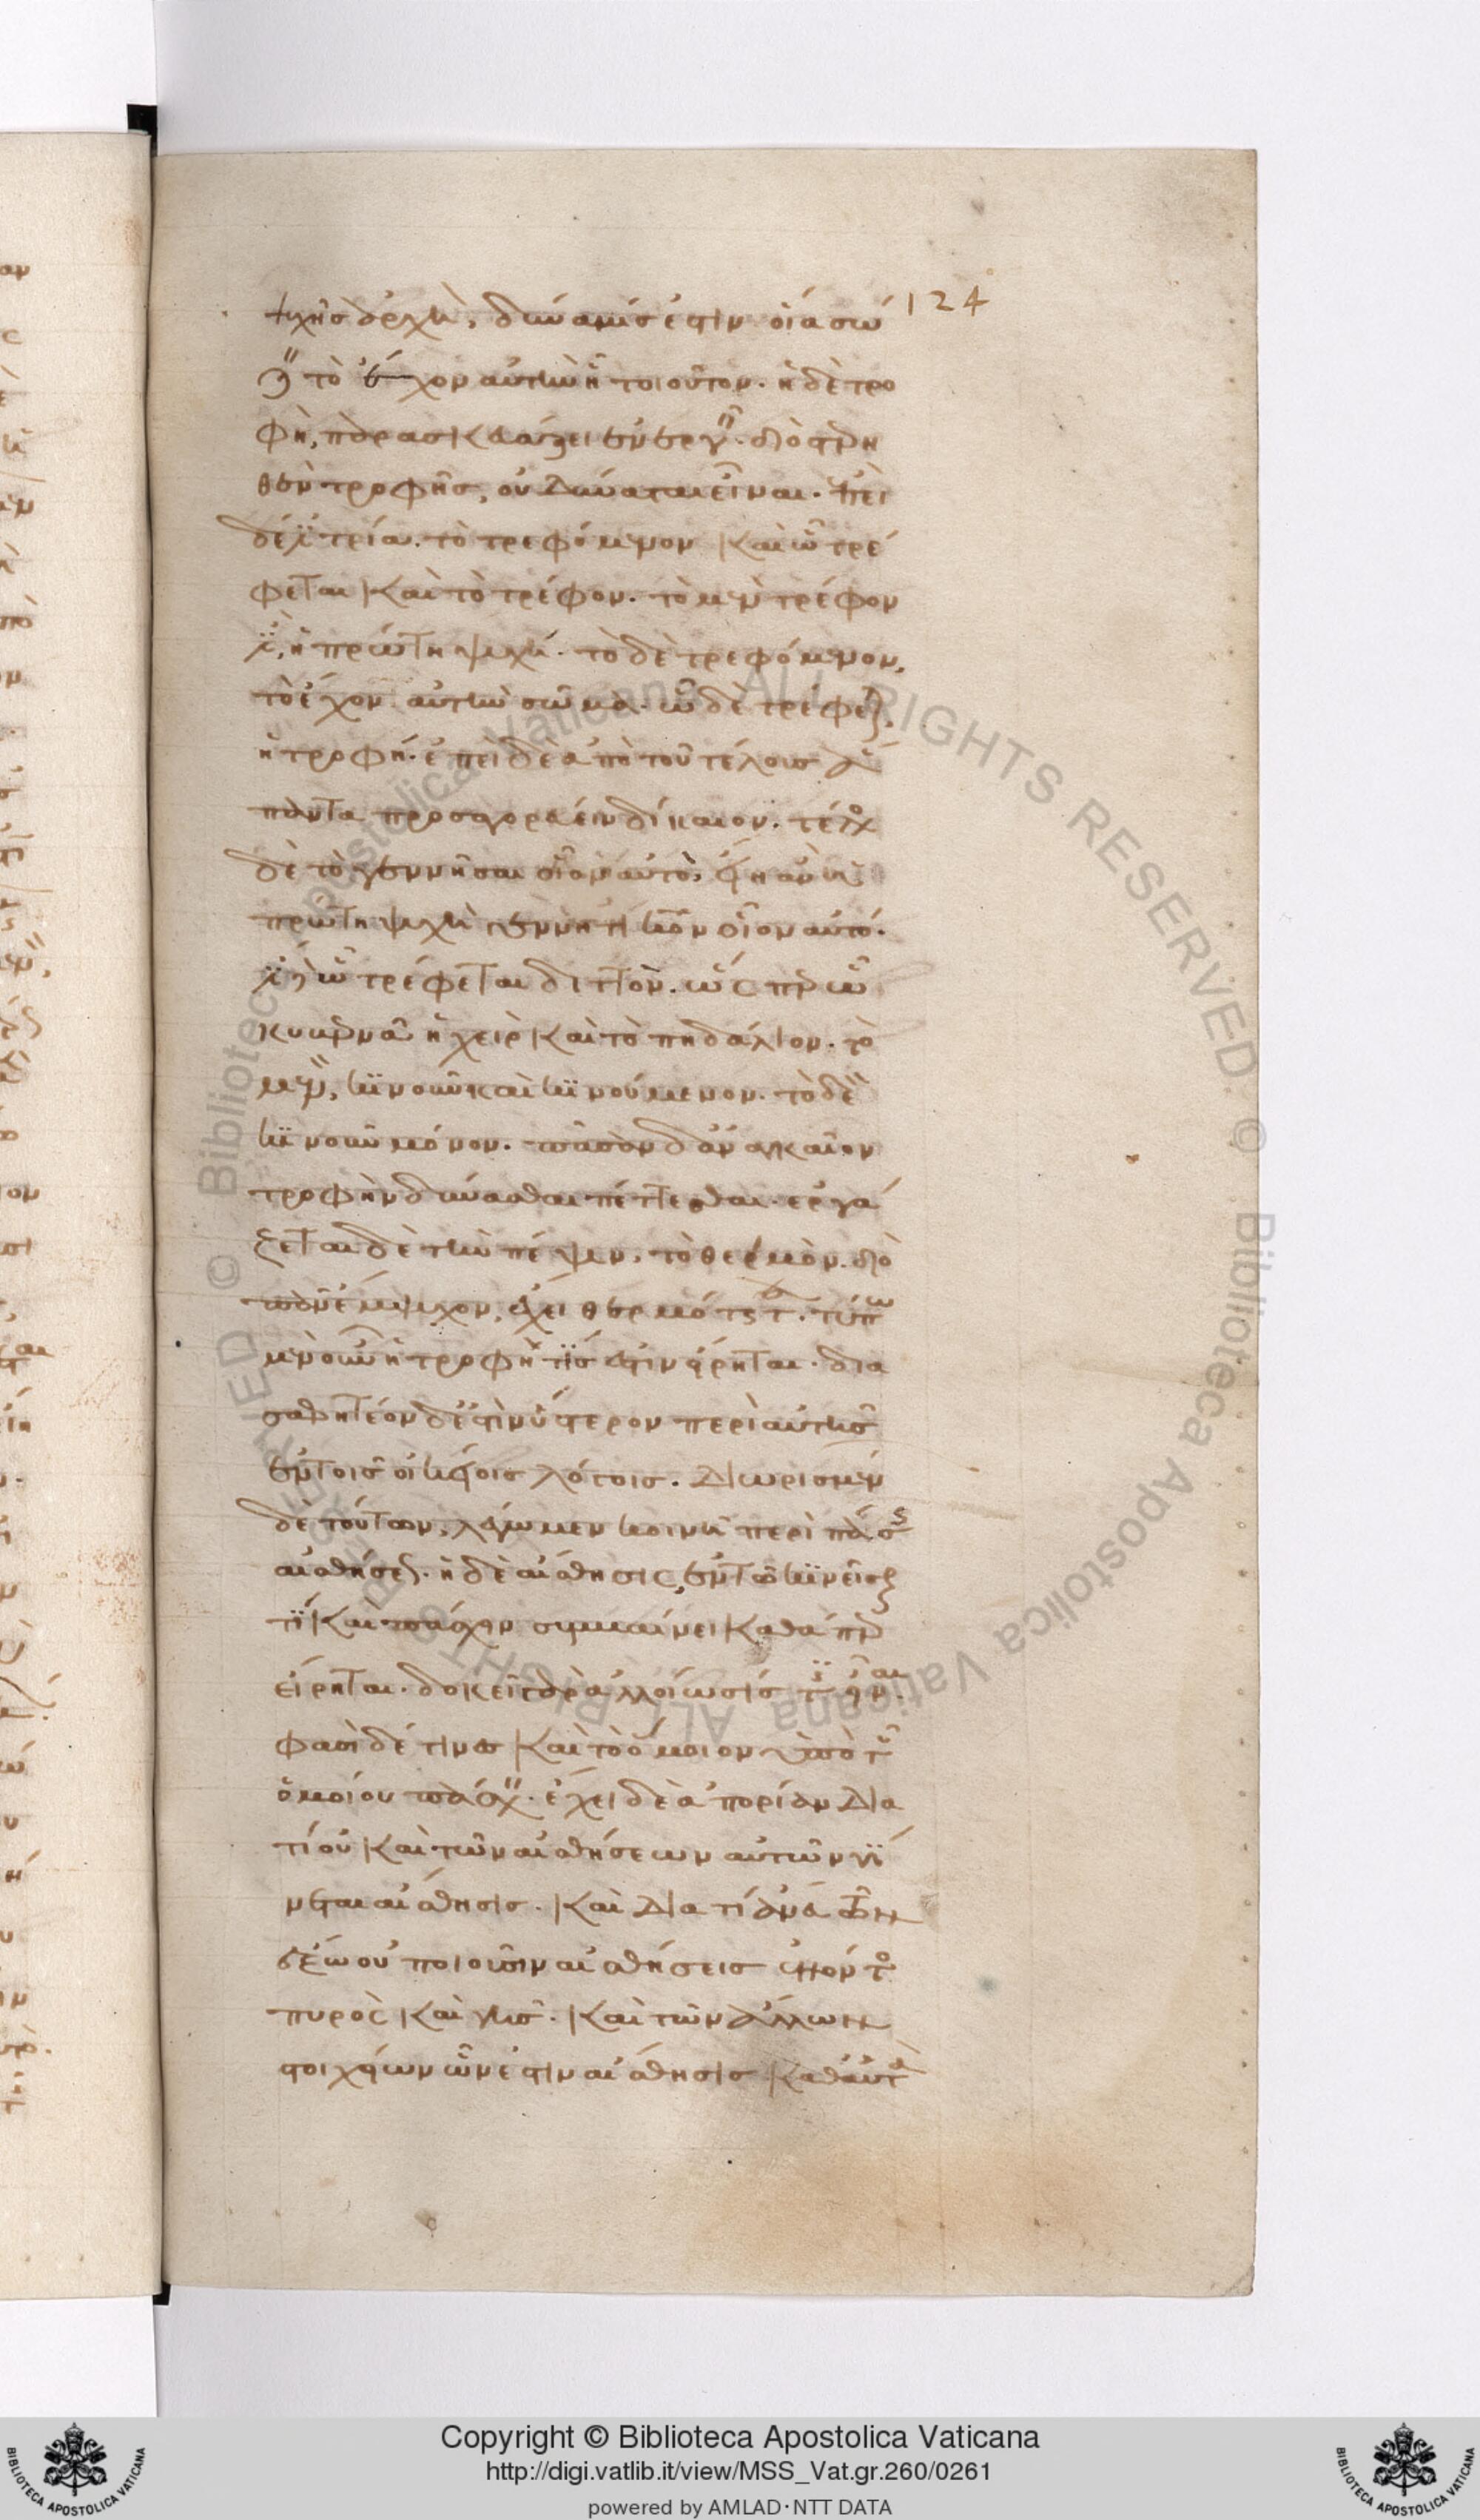 124
ψυχῆς ἀρχὴ, δύναμίς ἐστιν οἵα σώ
ζειν τὸ ἔχον αὐτὴν ᾗ τοιοῦτον. ἡ δὲ τρο
φὴ, παρασκευάζει ἐνεργεῖν. διὸ στερη
θὲν τροφῆς, οὐ δύναται εἶναι. ἐπεὶ
δέ ἐστι τρία. τὸ τρεφόμενον καὶ ᾧ τρέ
φεται καὶ τὸ τρέφον. τὸ μὲν τρέφον
ἐστὶν, ἡ πρώτη ψυχή. τὸ δὲ τρεφόμενον,
τὸ ἔχον αὐτὴν σῶμα. ᾧ δὲ τρέφεται,
ἡ τροφή. ἐπεὶ δὲ ἀπὸ τοῦ τέλους ἅ
παντα προσαγορεύειν δίκαιον. τέλος
δὲ τὸ γεννῆσαι οἷον αὐτὸ, εἴη ἂν ἡ
πρώτη ψυχὴ γεννητικὸν οἷον αὐτό.
ἔστι δὲ ᾧ τρέφεται διττὸν. ὥσπερ ᾧ
κυβερνᾷ ἡ χεὶρ καὶ τὸ πηδάλιον. τὸ
μὲν, κινοῦν καὶ κινούμενον. τὸ δὲ
κινοῦν μόνον. πᾶσαν δ' ἀναγκαῖον
τροφὴν δύνασθαι πέττεσθαι. ἐργά
ζεται δὲ τὴν πέψιν, τὸ θερμὸν. διὸ
πᾶν ἔμψυχον, ἔχει θερμότητα. τύπω
μὲν οὖν ἡ τροφὴ τίς ἐστιν εἴρηται. δια
σαφητέον δέ ἐστιν ὕστερον περὶ αὐτῆς
ἐν τοῖς οἰκείοις λόγοις. Διωρισμέν
δὲ τούτων, λέγωμεν κοινῇ περὶ πάσης
αἰσθήσεως. ἡ δὲ αἴσθησις, ἐν τῷ κινεῖσθαί
τι καὶ πάσχειν συμβαίνει καθάπερ
εἴρηται. δοκεῖ γὰρ ἀλλοίωσίς τις εἶναι.
φασὶ δέ τινες καὶ τὸ ὅμοιον ὑπὸ τοῦ
ὁμοίου πάσχειν. ἔχει δὲ ἀπορίαν Δια
τί οὐ καὶ τῶν αἰσθήσεων αὐτῶν γί
νεται αἴσθησις. καὶ Δια τί ἄνευ τῶν
ἔξω οὐ ποιοῦσιν αἰσθήσεις ἐνόντος
πυρὸς καὶ γῆς. καὶ τῶν ἄλλων
στοιχείων ὧν ἐστιν αἴσθησις καθ' αὑτὰ
Copyright © Biblioteca Apostolica Vaticana
http://digi.vatlib.it/view/MSS_Vat.gr.260/0261
powered by AMLAD·NTT DATA